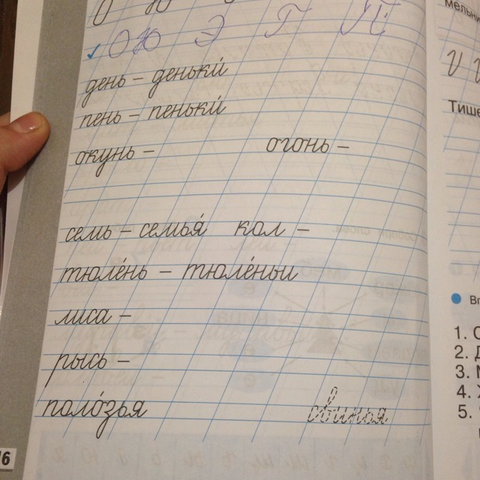 О Ю Э Г П
день – деньки́
пень – пеньки́
окунь – огонь –
семь – семья́ кол –
тюле́нь – тюле́ньи
лиса –
рысь –
поло́зья свинья
16
Тише
1.
2.
3.
4.
5.